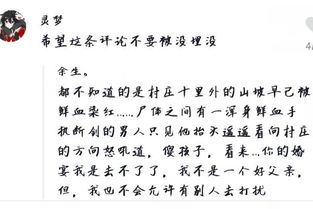 灵梦
希望这条评论不要被没埋没
余生。
都不知道的是村庄十里外的山坡早已被
鲜血染红……尸体之间有一浑身鲜血手
执断剑的男人只见他抬头遥遥看向村庄
的方向怒吼道，傻孩子，看来…你的婚
宴我是去不了了，我不是一个好父亲，
但，我也不会允许有别人去打扰